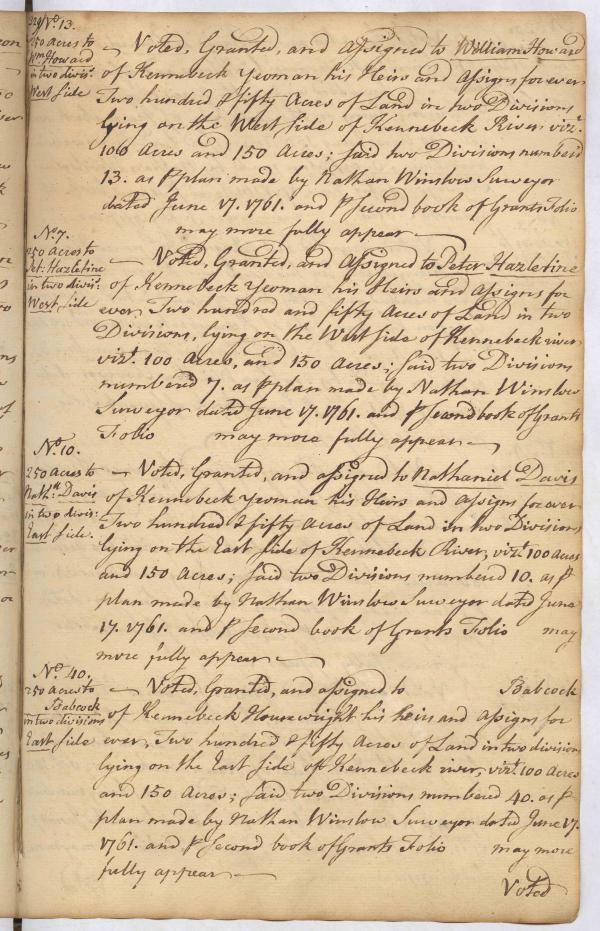 No. 13.
250 Acres to
Wm. Howard
in two divis:
West side
— Voted, Granted, and assigned to William Howard
of Kennebeck Yeoman his Heirs and Assigns forever
Two hundred & fifty Acres of Land in two Divisions
lying on the West side of Kennebeck River, vizt.
100 Acres and 150 Acres; said two Divisions numbered
13. as ⅌ plan made by Nathan Winslow Surveyor
dated June 17. 1761. and ⅌ Second book of Grants Folio
may more fully appear —
No. 7.
250 Acres to
Pet: Hazletine
in two divis:
West side
— Voted, Granted, and Assigned to Peter Hazletine
of Kennebeck Yeoman his Heirs and Assigns for
ever, Two hundred and fifty Acres of Land in two
Divisions, lying on the West side of Kennebeck river
vizt. 100 Acres, and 150 Acres; said two Divisions
numbered 7. as ⅌ plan made by Nathan Winslow
Surveyor dated June 17. 1761. and ⅌ Second book of Grants
Folio may more fully appear. —
No. 10.
250 Acres to
Nathll. Davis
in two divis:
East side.
— Voted, Granted, and assigned to Nathaniel Davis
of Kennebeck Yeoman his Heirs and Assigns forever
Two hundred & fifty Acres of Land in two Divisions
lying on the East side of Kennebeck River, vizt. 100 Acres
and 150 Acres; said two Divisions numbered 10. as ⅌
plan made by Nathan Winslow Surveyor dated June
17. 1761. and ⅌ Second book of Grants Folio may
more fully appear —
No. 40.
250 Acres to
Babcock
in two divisions
East side
— Voted, Granted, and assigned to Babcock
of Kennebeck Housewright his heirs and assigns for
ever, Two hundred & fifty Acres of Land in two division
lying on the East side of Kennebeck river, vizt. 100 Acres
and 150 Acres; said two Divisions numbered 40. as ⅌
plan made by Nathan Winslow Surveyor dated June 17.
1761. and ⅌ Second book of Grants Folio may more
fully appear —
Voted